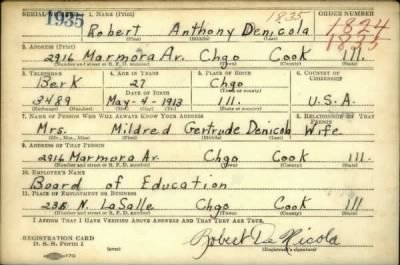 SERIAL NUMBER 1. NAME (Print) 1835 ORDER NUMBER
1935 Robert Anthony Denicola 1824
(First) (Middle) (Last)
2. ADDRESS (Print)
2916 Marmora Av. Chgo Cook Ill.
(Number and street or R. F. D. number) (Town) (County) (State)
3. TELEPHONE 4. AGE IN YEARS 5. PLACE OF BIRTH 6. COUNTRY OF CITIZENSHIP
Berk 27 Chgo
DATE OF BIRTH
3489 May-4-1913 Ill. U.S.A.
7. NAME OF PERSON WHO WILL ALWAYS KNOW YOUR ADDRESS 8. RELATIONSHIP OF THAT PERSON
Mrs. Mildred Gertrude Denicola Wife
(Mr., Mrs., Miss) (First) (Middle) (Last)
9. ADDRESS OF THAT PERSON
2916 Marmora Av Chgo Cook Ill.
(Number and street or R. F. D. number) (Town) (County) (State)
10. EMPLOYER'S NAME
Board of Education
11. PLACE OF EMPLOYMENT OR BUSINESS
N. LaSalle Chgo Cook Ill
(Number and street or R. F. D. number) (Town) (County) (State)
I AFFIRM THAT I HAVE VERIFIED ABOVE ANSWERS AND THAT THEY ARE TRUE.
REGISTRATION CARD
D. S. S. Form 1 Robert De Nicola
(Registrant's signature)